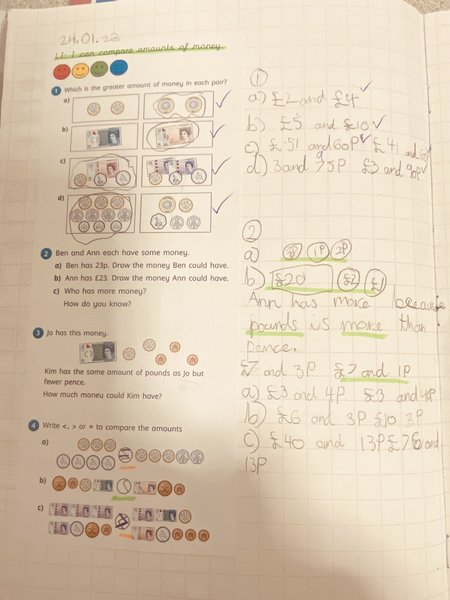 24.01.23
L1: I can compare amounts of money.
1 Which is the greater amount of money in each pair?
a)
b)
c)
d)
2 Ben and Ann each have some money.
a) Ben has 23p. Draw the money Ben could have.
b) Ann has £23. Draw the money Ann could have.
c) Who has more money?
How do you know?
3 Jo has this money.
Kim has the same amount of pounds as Jo but
fewer pence.
How much money could Kim have?
4 Write <, > or = to compare the amounts
a)
b)
c)
1
a) £2 and £4
b) £5 and £10
c) £51 and 60P £41 and
d) 3 and 95P £3 and 90P
2
a)
b) £20 £2 £1
Ann has more because
pounds is more than
pence.
£7 and 3P £7 and 1P
a) £3 and 4P £3 and 40P
b) £6 and 3P £10 3P
c) £40 and 13P £70 and
13P